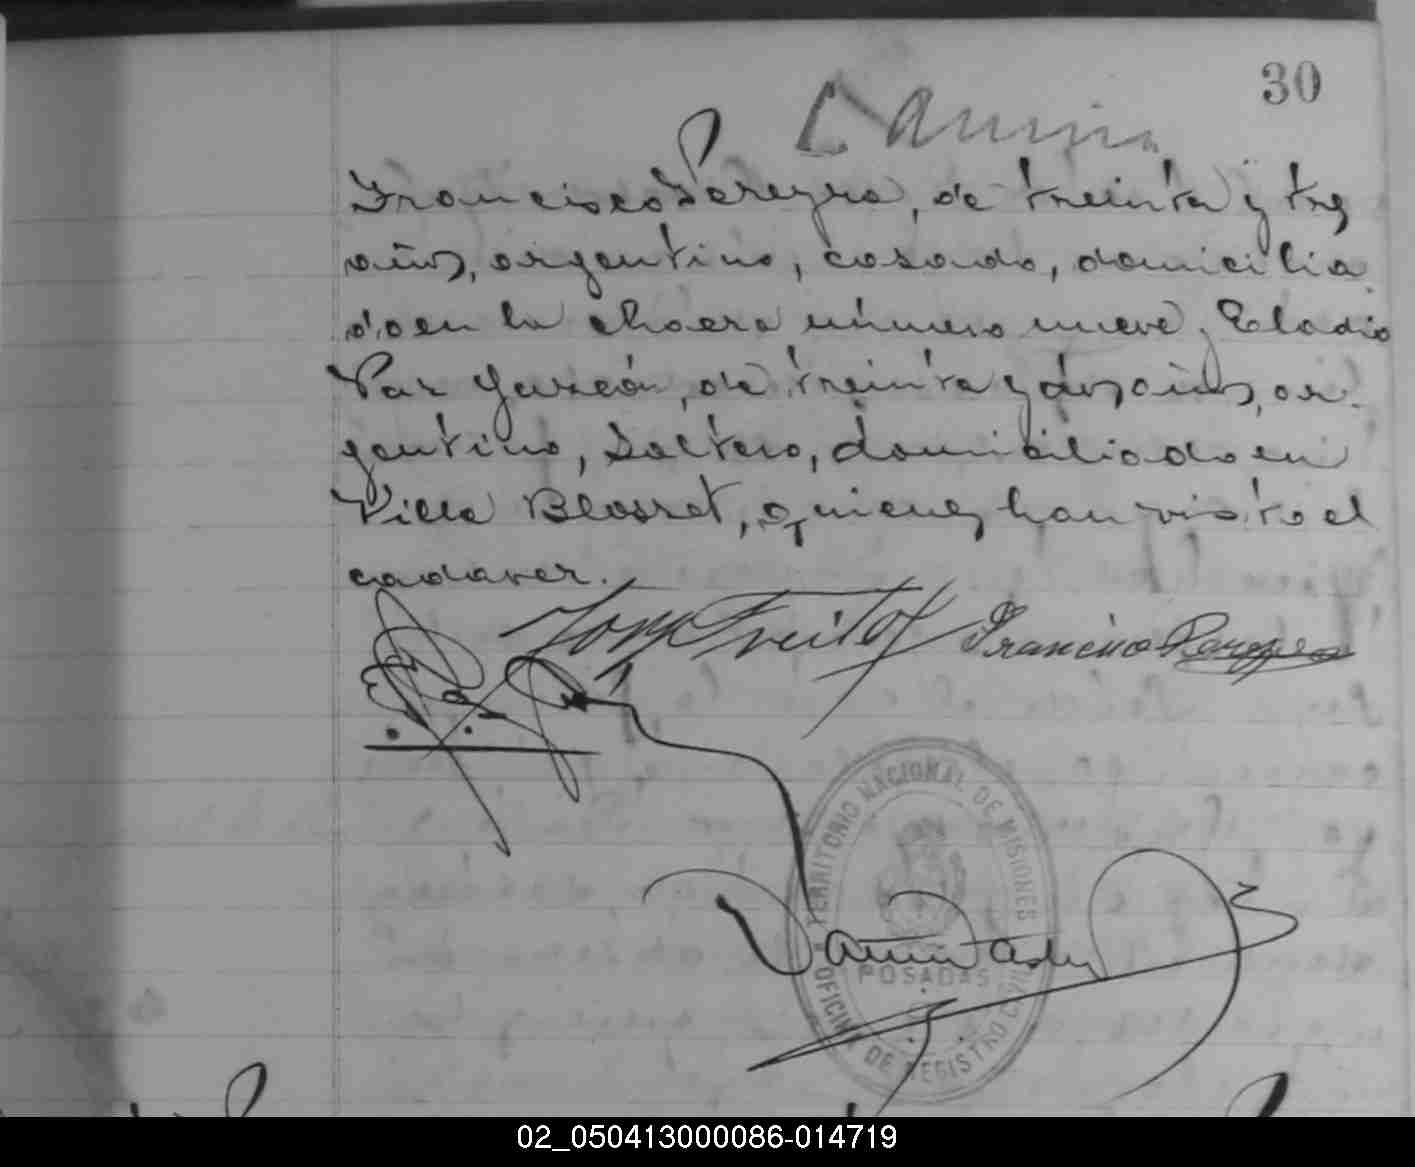 30
Francisco Pereyra, de treinta y tres
años, argentino, casado, domicilia
do en la chacra número nueve y Eladio
Paz Garzón, de treinta y dos años, ar-
gentino, soltero, domiciliado en
Villa Blosset, quienes han visto el
cadaver.
Jorge Freitof Francisco Pereyra
TERRITORIO NACIONAL DE MISIONES
POSADAS
OFICINA DE REGISTRO CIVIL
02_050413000086-014719